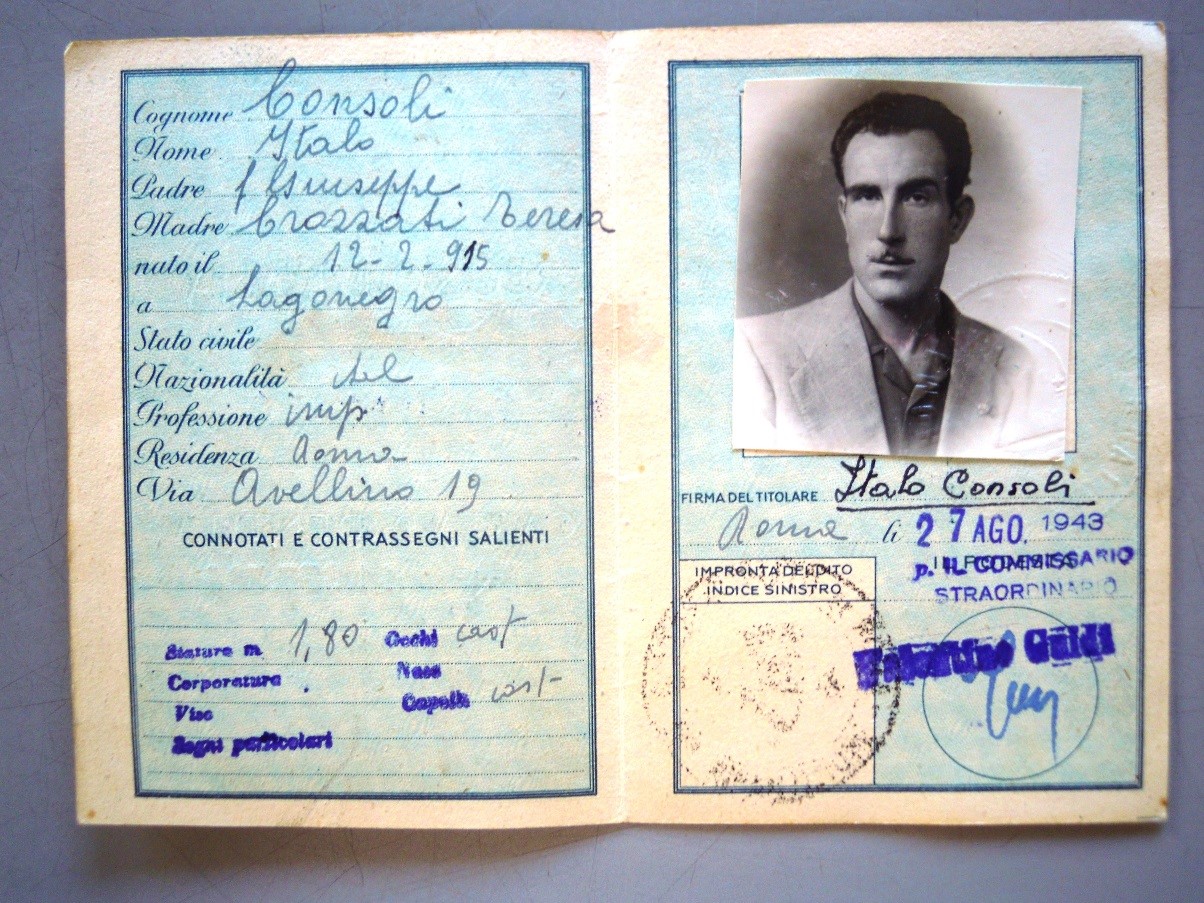 Cognome Consoli
Nome Italo
Padre f Giuseppe
Madre Crozzati Teresa
nato il 12-2-915
a Lagonegro
Stato civile
Nazionalità ital
Professione imp
Residenza Roma
Via Avellino 19
CONNOTATI E CONTRASSEGNI SALIENTI
Statura m. 1,80 Occhi cast
Corporatura Naso
Viso Capelli cast
Segni particolari
FIRMA DEL TITOLARE Italo Consoli
Roma li 27 AGO. 1943
p. IL COMMISSARIO
STRAORDINARIO
IMPRONTA DEL DITO
INDICE SINISTRO
Guidi